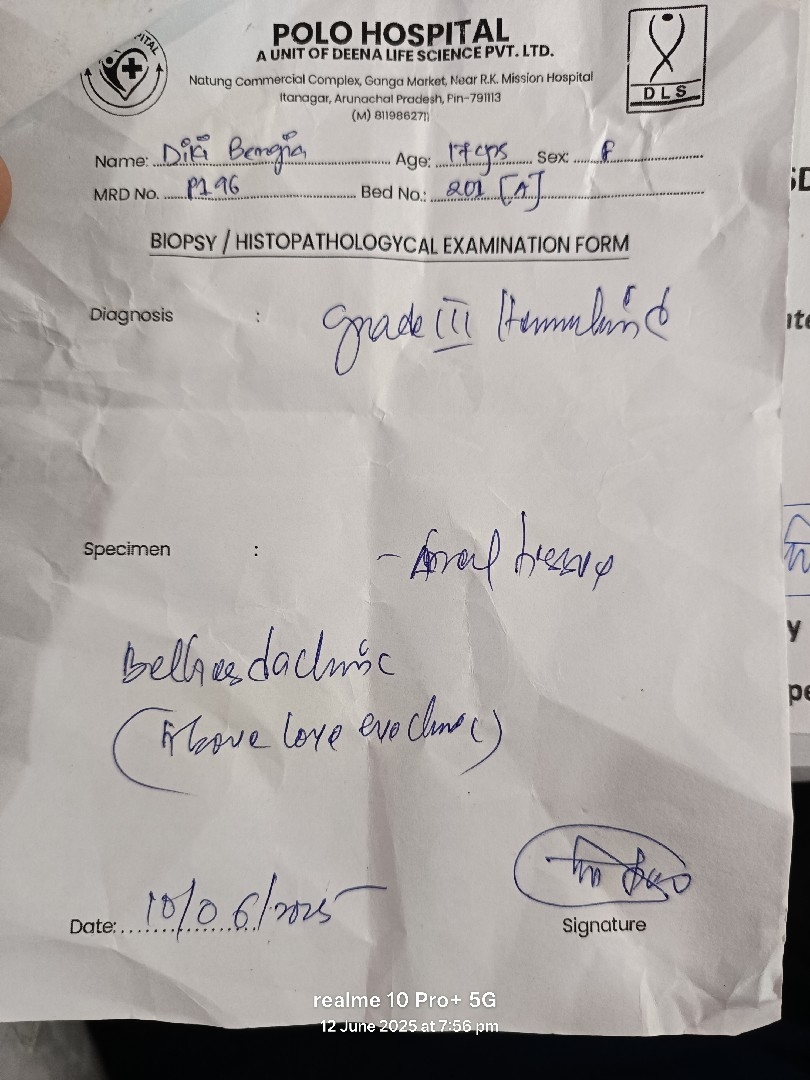 POLO HOSPITAL
A UNIT OF DEENA LIFE SCIENCE PVT. LTD.
Natung Commercial Complex, Ganga Market, Near R.K. Mission Hospital
Itanagar, Arunachal Pradesh, Pin-791113
(M) 811986271
DLS
Name: Diki Bengia Age: 17 yrs Sex: F
MRD No. P196 Bed No.: 201 [A]
BIOPSY / HISTOPATHOLOGYCAL EXAMINATION FORM
Diagnosis : Grade III
Specimen : - Anal tissue
Bethesda clinic
(Above Love eye clinic)
Date: 10/06/2025
Signature
realme 10 Pro+ 5G
12 June 2025 at 7:56 pm